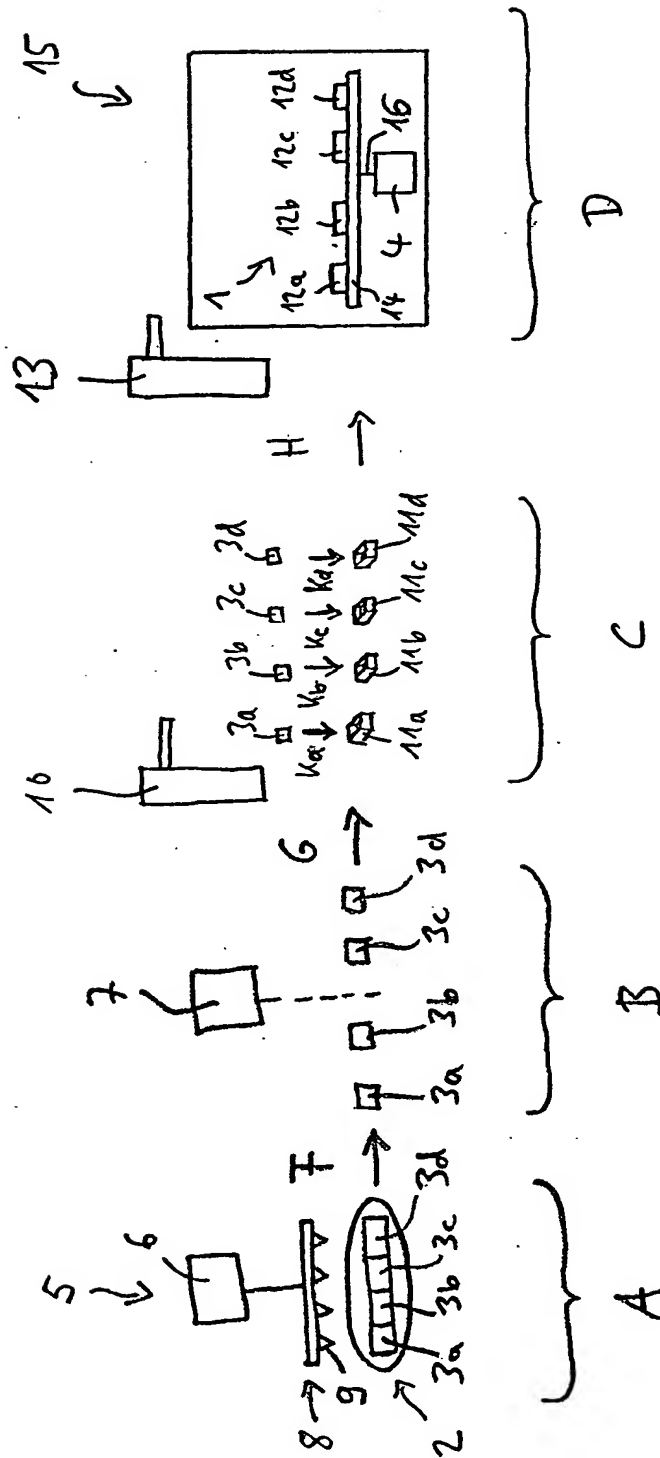 5
6
8
9
2
3a 3b 3c 3d
F
A
7
3a 3b 3c 3d
B
G
10
3a 3b 3c 3d
Ka Kb Kc Kd
11a 11b 11c 11d
C
H
13
15
1
12a 12b 12c 12d
14 4 16
D